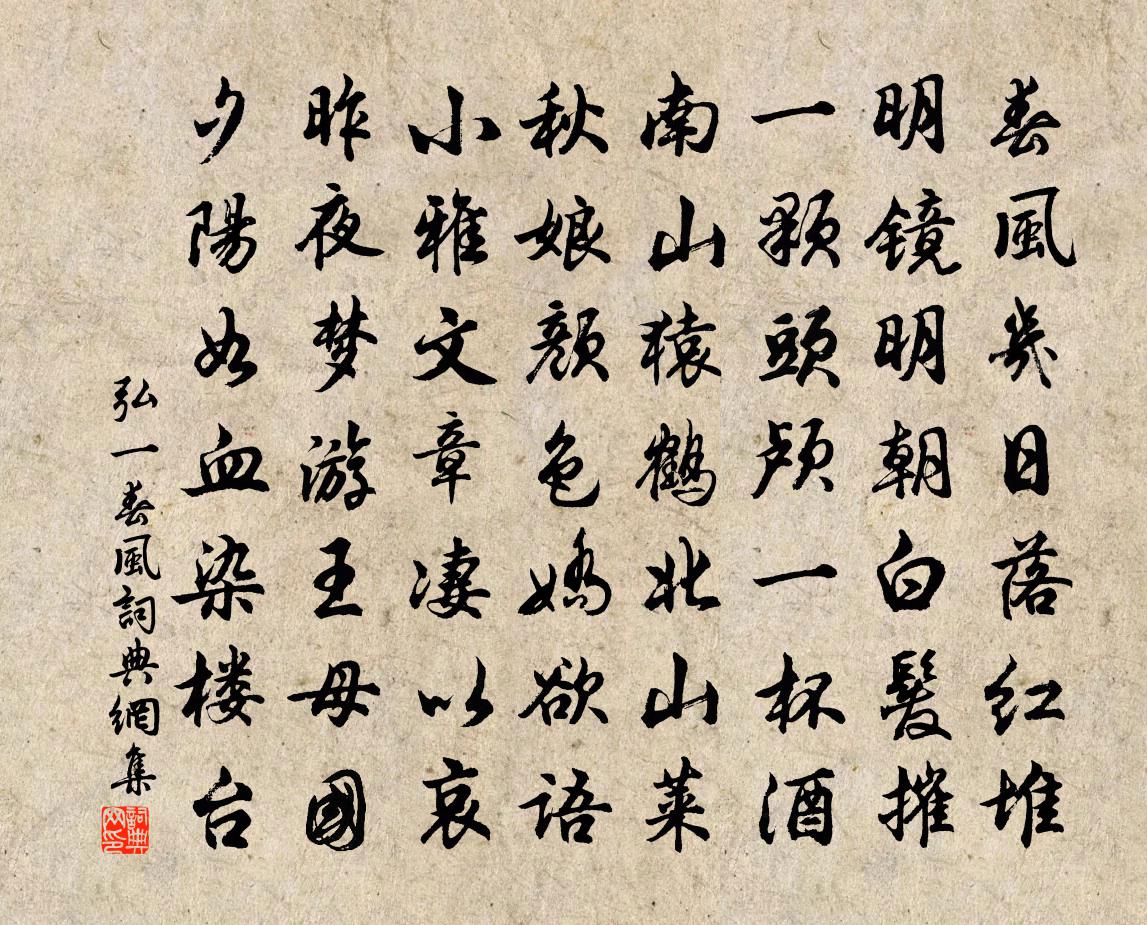 春風幾日落红堆
明镜明朝白髮摧
一顆頭颅一杯酒
南山猿鶴北山菜
秋娘顏色嬌欲语
小雅文章凄以哀
昨夜梦游王母國
夕陽如血染楼台
弘一春風詞典網集
詞典网印